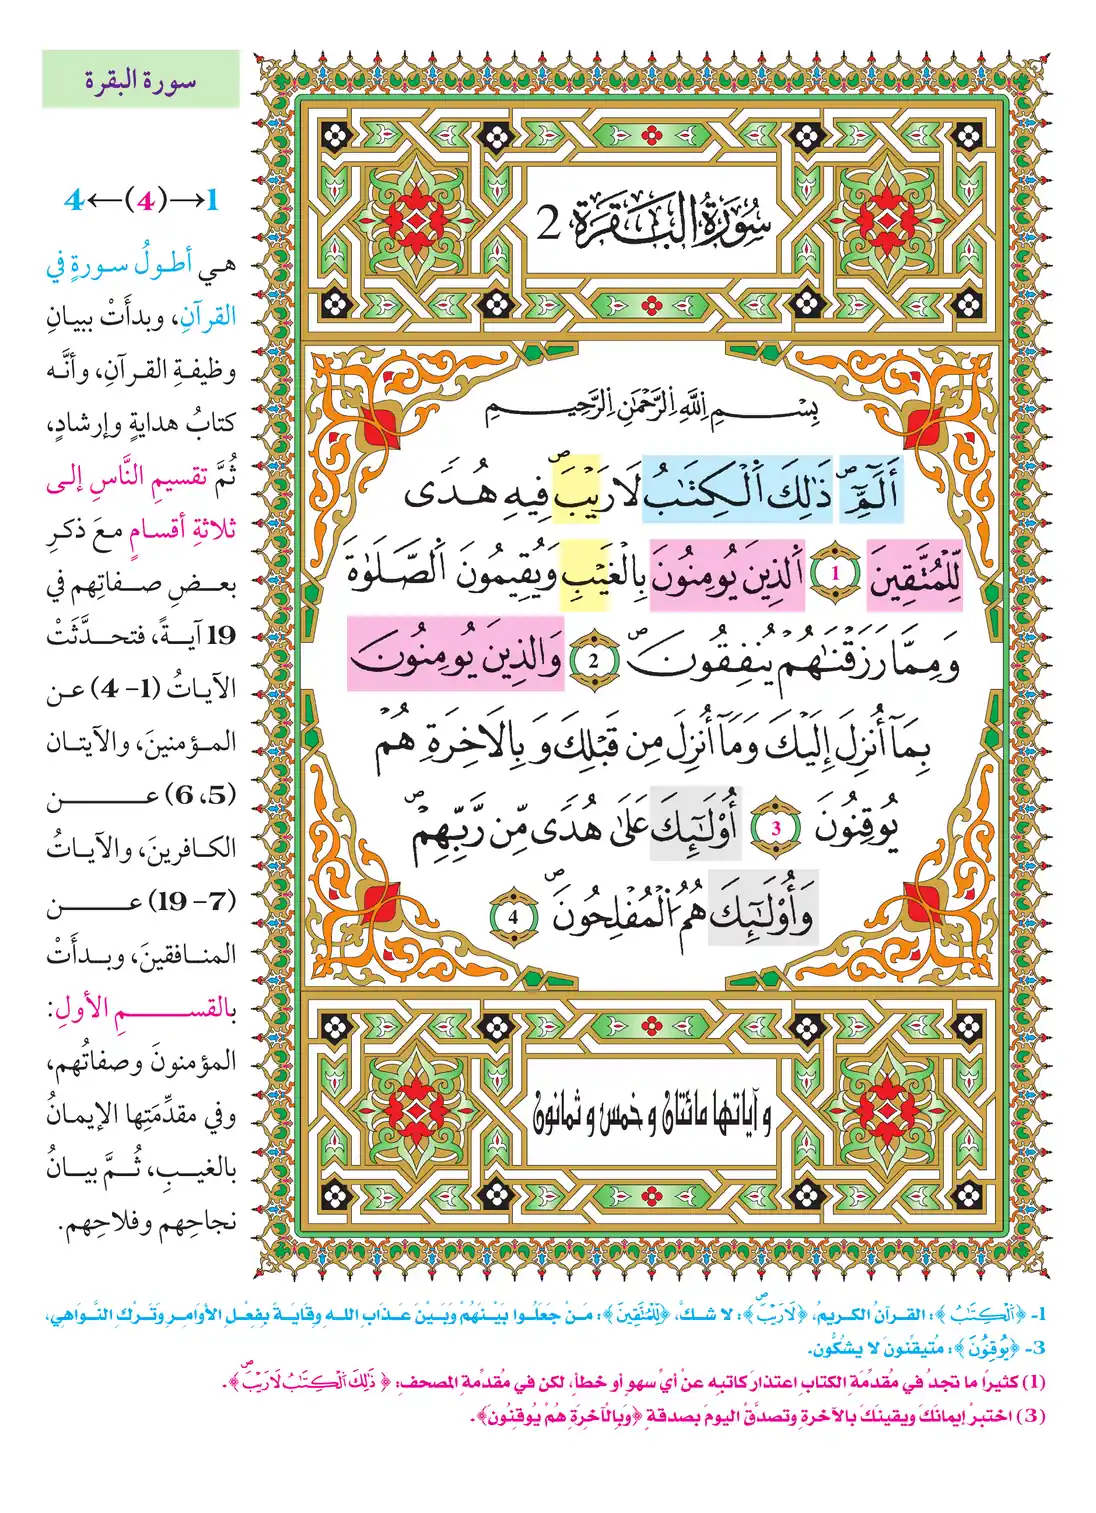 سورة البقرة
1→(4)←4
هي أطولُ سورةٍ في
القرآنِ، وبدأَتْ ببيانِ
وظيفةِ القرآنِ، وأنَّه
كتابُ هدايةٍ وإرشادٍ،
ثُمَّ تقسيمِ النَّاسِ إلى
ثلاثةِ أقسامٍ معَ ذكرِ
بعضِ صفاتِهم في
19 آيةً، فتحدَّثَتْ
الآياتُ (1- 4) عن
المؤمنينَ، والآيتان
(5، 6) عن
الكافرينَ، والآياتُ
(7- 19) عن
المنافقينَ، وبدأَتْ
بالقسمِ الأولِ:
المؤمنونَ وصفاتُهم،
وفي مقدِّمَتِها الإيمانُ
بالغيبِ، ثُمَّ بيانُ
نجاحِهم وفلاحِهم.
سُورَةُ البَقَرَة 2
بِسْمِ اِللَّهِ اِلرَّحْمَٰنِ اِلرَّحِيمِ
أَلَٓمِّٓۖ ذَٰلِكَ اَلْكِتَٰبُ لَا رَيْبَۖ فِيهِ هُدىَ
لِّلْمُتَّقِينَ 1 اَلذِينَ يُومِنُونَ بِالْغَيْبِ وَيُقِيمُونَ اَلصَّلَوٰةَ
وَمِمَّا رَزَقْنَٰهُمْ يُنفِقُونَۖ 2 وَالذِينَ يُومِنُونَ
بِمَآ أُنزِلَ إِلَيْكَ وَمَآ أُنزِلَ مِن قَبْلِكَ وَبِالَاخِرَةِ هُمْ
يُوقِنُونَ 3 أُوْلَٰٓئِكَ عَلَىٰ هُدىَ مِّن رَّبِّهِمْۖ
وَأُوْلَٰٓئِكَ هُمُ اُلْمُفْلِحُونَۖ 4
و آياتها مائتان و خمس و ثمانون
1- ﴿اَلْكِتَٰبُ﴾: القرآنُ الكريمُ، ﴿لَا رَيْبَۖ﴾: لا شكَّ، ﴿لِّلْمُتَّقِينَ﴾: مَنْ جَعَلُوا بَيْنَهُمْ وَبَيْنَ عَذَابِ اللهِ وِقَايَةً بِفِعْلِ الأَوَامِرِ وَتَرْكِ النَّوَاهِي،
3- ﴿يُوقِنُونَ﴾: مُتيقِّنونَ لا يشكُّون.
(1) كثيرًا ما تجدُ في مُقدِّمَةِ الكتابِ اعتذارَ كاتبِه عنْ أيِّ سهوٍ أو خطأٍ، لكن في مُقدِّمة المصحفِ: ﴿ذَٰلِكَ اَلْكِتَٰبُ لَا رَيْبَۖ﴾.
(3) اختبرْ إيمانَكَ ويقينَكَ بالآخرةِ وتصدقْ اليومَ بصدقةٍ ﴿وَبِالْآخِرَةِ هُمْ يُوقِنُونَ﴾.